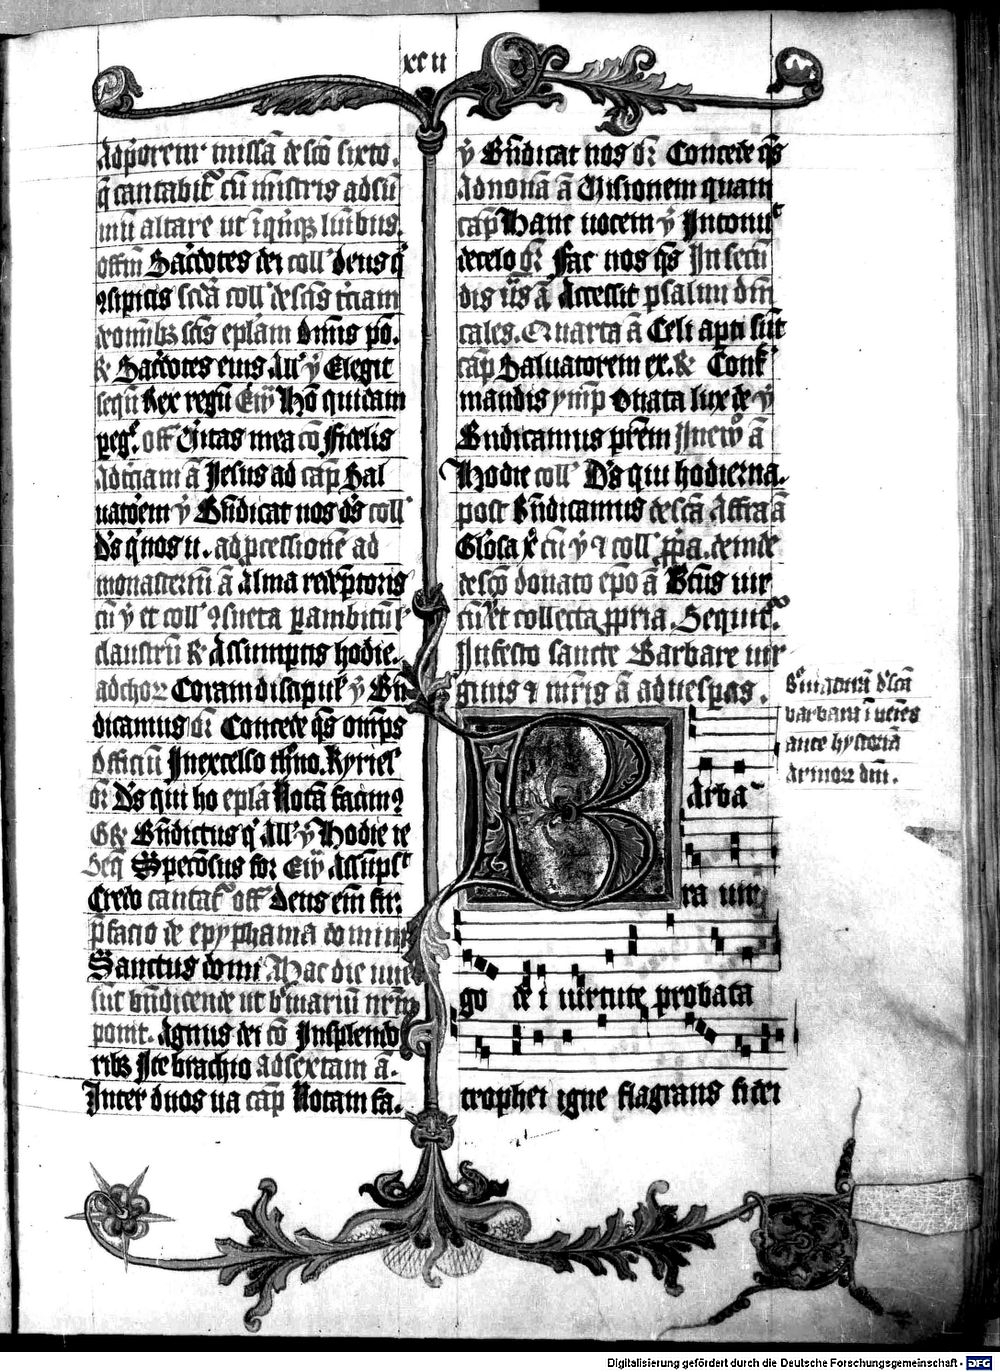 xcii
Adp̄orem missā de scō sixto.
q̄ cantabit̄ cū mīstris ad sū
mū altare ut ī qīq luībus.
offm̄ Sac̄dotes dei coll' deus q'
ꝯspicis scd̄a coll' de scīs t̄ciam
de omībꝫ scīs eplam dnūs po.
R̄ Sac̄dotes eius All' ꝟ Elegit
sequ Rex regū Ew̄ Hō quidam
peg̃. off Ūitas mea cō Fidelis
Ad t̄ciam ā Jesus ad cap̄ Sal
uatōem ꝟ Bn̄dicat nos d's coll'
D's q' nos ii. ad ꝓcessionē ad
monasteriū ā Alma redēptoris
cū ꝟ et coll' ꝯsueta ꝑ ambitū
claustrū R̄ Assumptis hodie.
ad choꝝ Coram discipul' ꝟ Bn̄
dicamus or̄ Concede q̄s omp̄s
Officiū In excelso thr̄no. Kyriel'
or̄ D's qui ho epla Notā facim9
GR̄ Bn̄dictus q' All' ꝟ Hodie te
Seq̄ Speciosus for Ew̄ Assūpt
Credo cantat̄ off Deus em̄ fir.
p̄facio de epyphania domini
Sanctus domi Hac die uue
sūt bn̄dicende ut b'uariū nr̄m
ponit. Agnus dei cō In splendo
ribꝫ Ite brachio ad sextam ā.
Inter duos ua cap̄ Notam fa.
ꝟ Bn̄dicat nos or̄ Concede q̄s
Ad nonā ā Uisionem quam
cap̄ Hanc uocem ꝟ Intonu
de celo or̄ Fac nos q̄s In secū
dis ūs ā Accessit psalmi dm̄
cales. Quarta ā Celi apti sūt
cap̄ Saluatorem ex. R̄ Conf
mandis ymp̄ O nata lux de ꝟ
Bn̄dicamus pr̄em In ew̄ ā
Hodie coll' D's qui hodierna.
post Bn̄dicamus de scā Affra ā
Glosa x̄ cū ꝟ ⁊ coll' ꝓpa. deinde
de scō donato epo ā B̄tūs uir
cū ꝟ et collecta ꝓpria. Sequit̄
In festo sancte Barbare uir
ginis ⁊ mr̄is ā ad uesꝑas.
B'uiaturā d' scā
barbara ī ueīes
ante hystoriā
Armoꝝ dm̄.
Barba
ra uir
go dei uirtute probata
trophei igne flagrans fidei
Digitalisierung gefördert durch die Deutsche Forschungsgemeinschaft - DFG